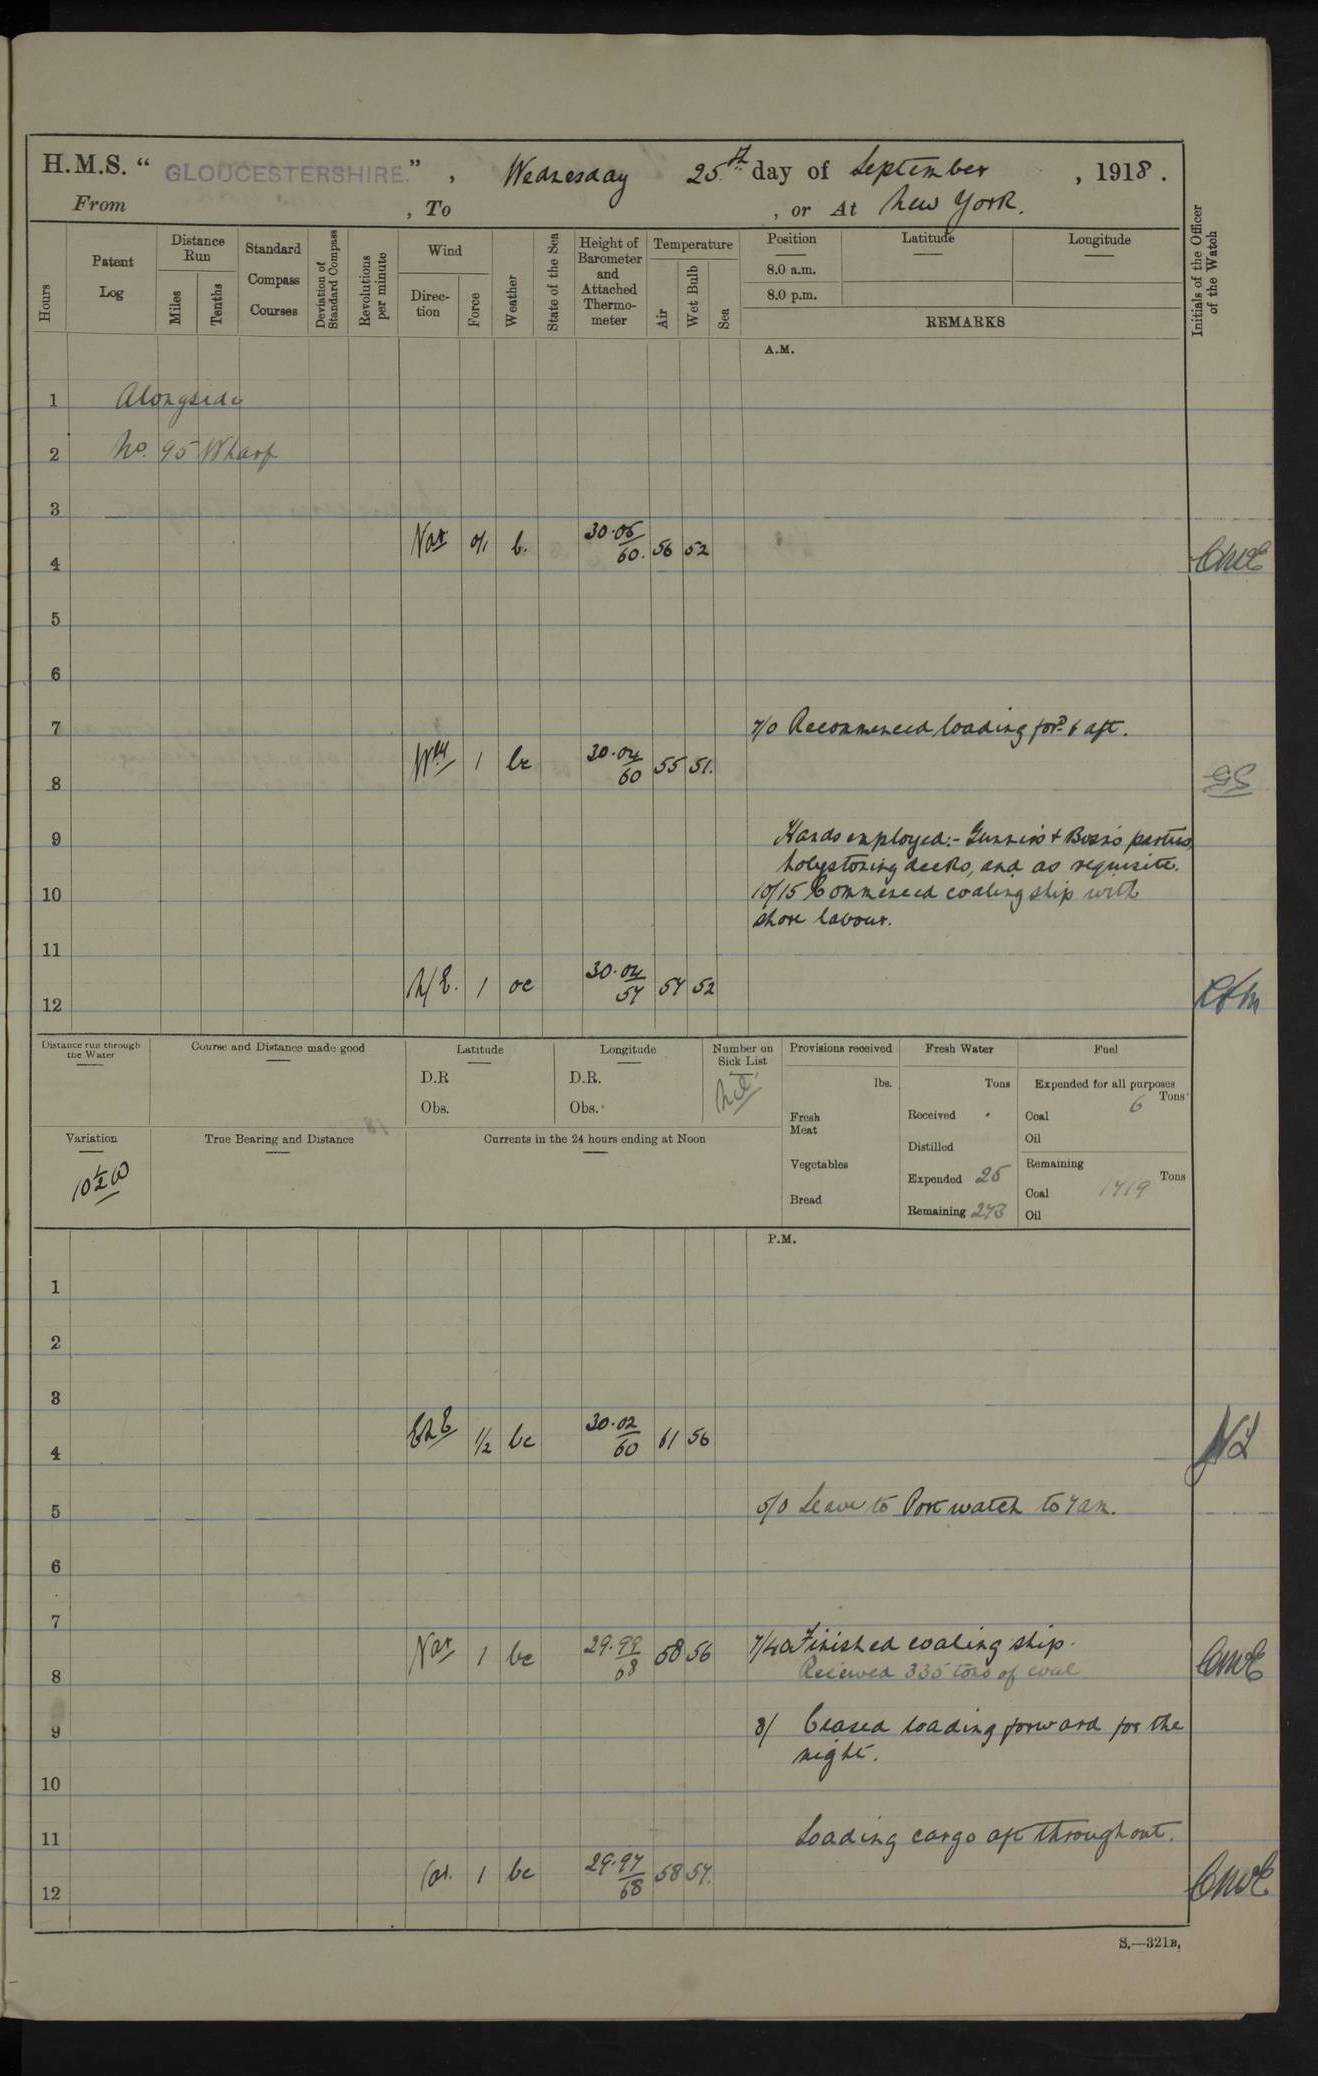 H.M.S. “ GLOUCESTERSHIRE. ” , Wednesday 25th day of September , 1918 .
From , To , or At New York.
Hours
Patent Log
Distance Run
Miles
Tenths
Standard Compass Courses
Deviation of Standard Compass
Revolutions per minute
Wind
Direction
Force
Weather
State of the Sea
Height of Barometer and Attached Thermometer
Temperature
Air
Wet Bulb
Sea
Position
8.0 a.m.
8.0 p.m.
Latitude
Longitude
REMARKS
Initials of the Officer of the Watch
A.M.
1 Alongside
2 No. 95 Wharf
3
4 Var 0/1 b. 30.05/60. 56 52
5
6
7 7/0 Recommenced loading for'd & aft.
8 W'ly 1 bc 30.04/60 55 51.
9 Hands employed:- Gunner's & Bosn's parties,
holystoning decks, and as requisite.
10 10/15 Commenced coaling ship with
shore labour.
11
12 N/E. 1 oc 30.04/57 57 52
Distance run through the Water
Course and Distance made good
Latitude
D.R
Obs.
Longitude
D.R.
Obs.
Number on Sick List
Nil
Provisions received
lbs.
Fresh Meat
Vegetables
Bread
Fresh Water
Tons
Received
Distilled
Expended 25
Remaining 273
Fuel
Expended for all purposes
Tons
Coal 6
Oil
Remaining
Tons
Coal 1719
Oil
Variation
10½ W
True Bearing and Distance
Currents in the 24 hours ending at Noon
P.M.
1
2
3
4 ENE 1/2 bc 30.02/60 61 56
5 5/0 Leave to Port watch to 7am.
6
7
8 Var 1 bc 29.99/68 58 56 7/40 Finished coaling ship.
Received 335 tons of coal
9 8/ Ceased loading forward for the
night.
10
11 Loading cargo aft throughout.
12 1 bc 29.97/68 58 57.
S.—321B.